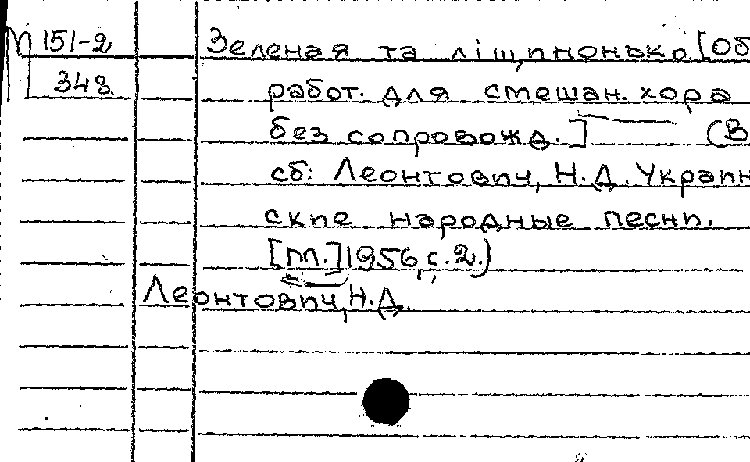 М 151-2 Зеленая та ліщинонько [Об
343 работ. для смешан. хора
без сопровожд.] (В
сб: Леонтович, Н.Д. Украин
ские народные песни.
[М.] 1956, с.2.)
Леонтович, Н.Д.